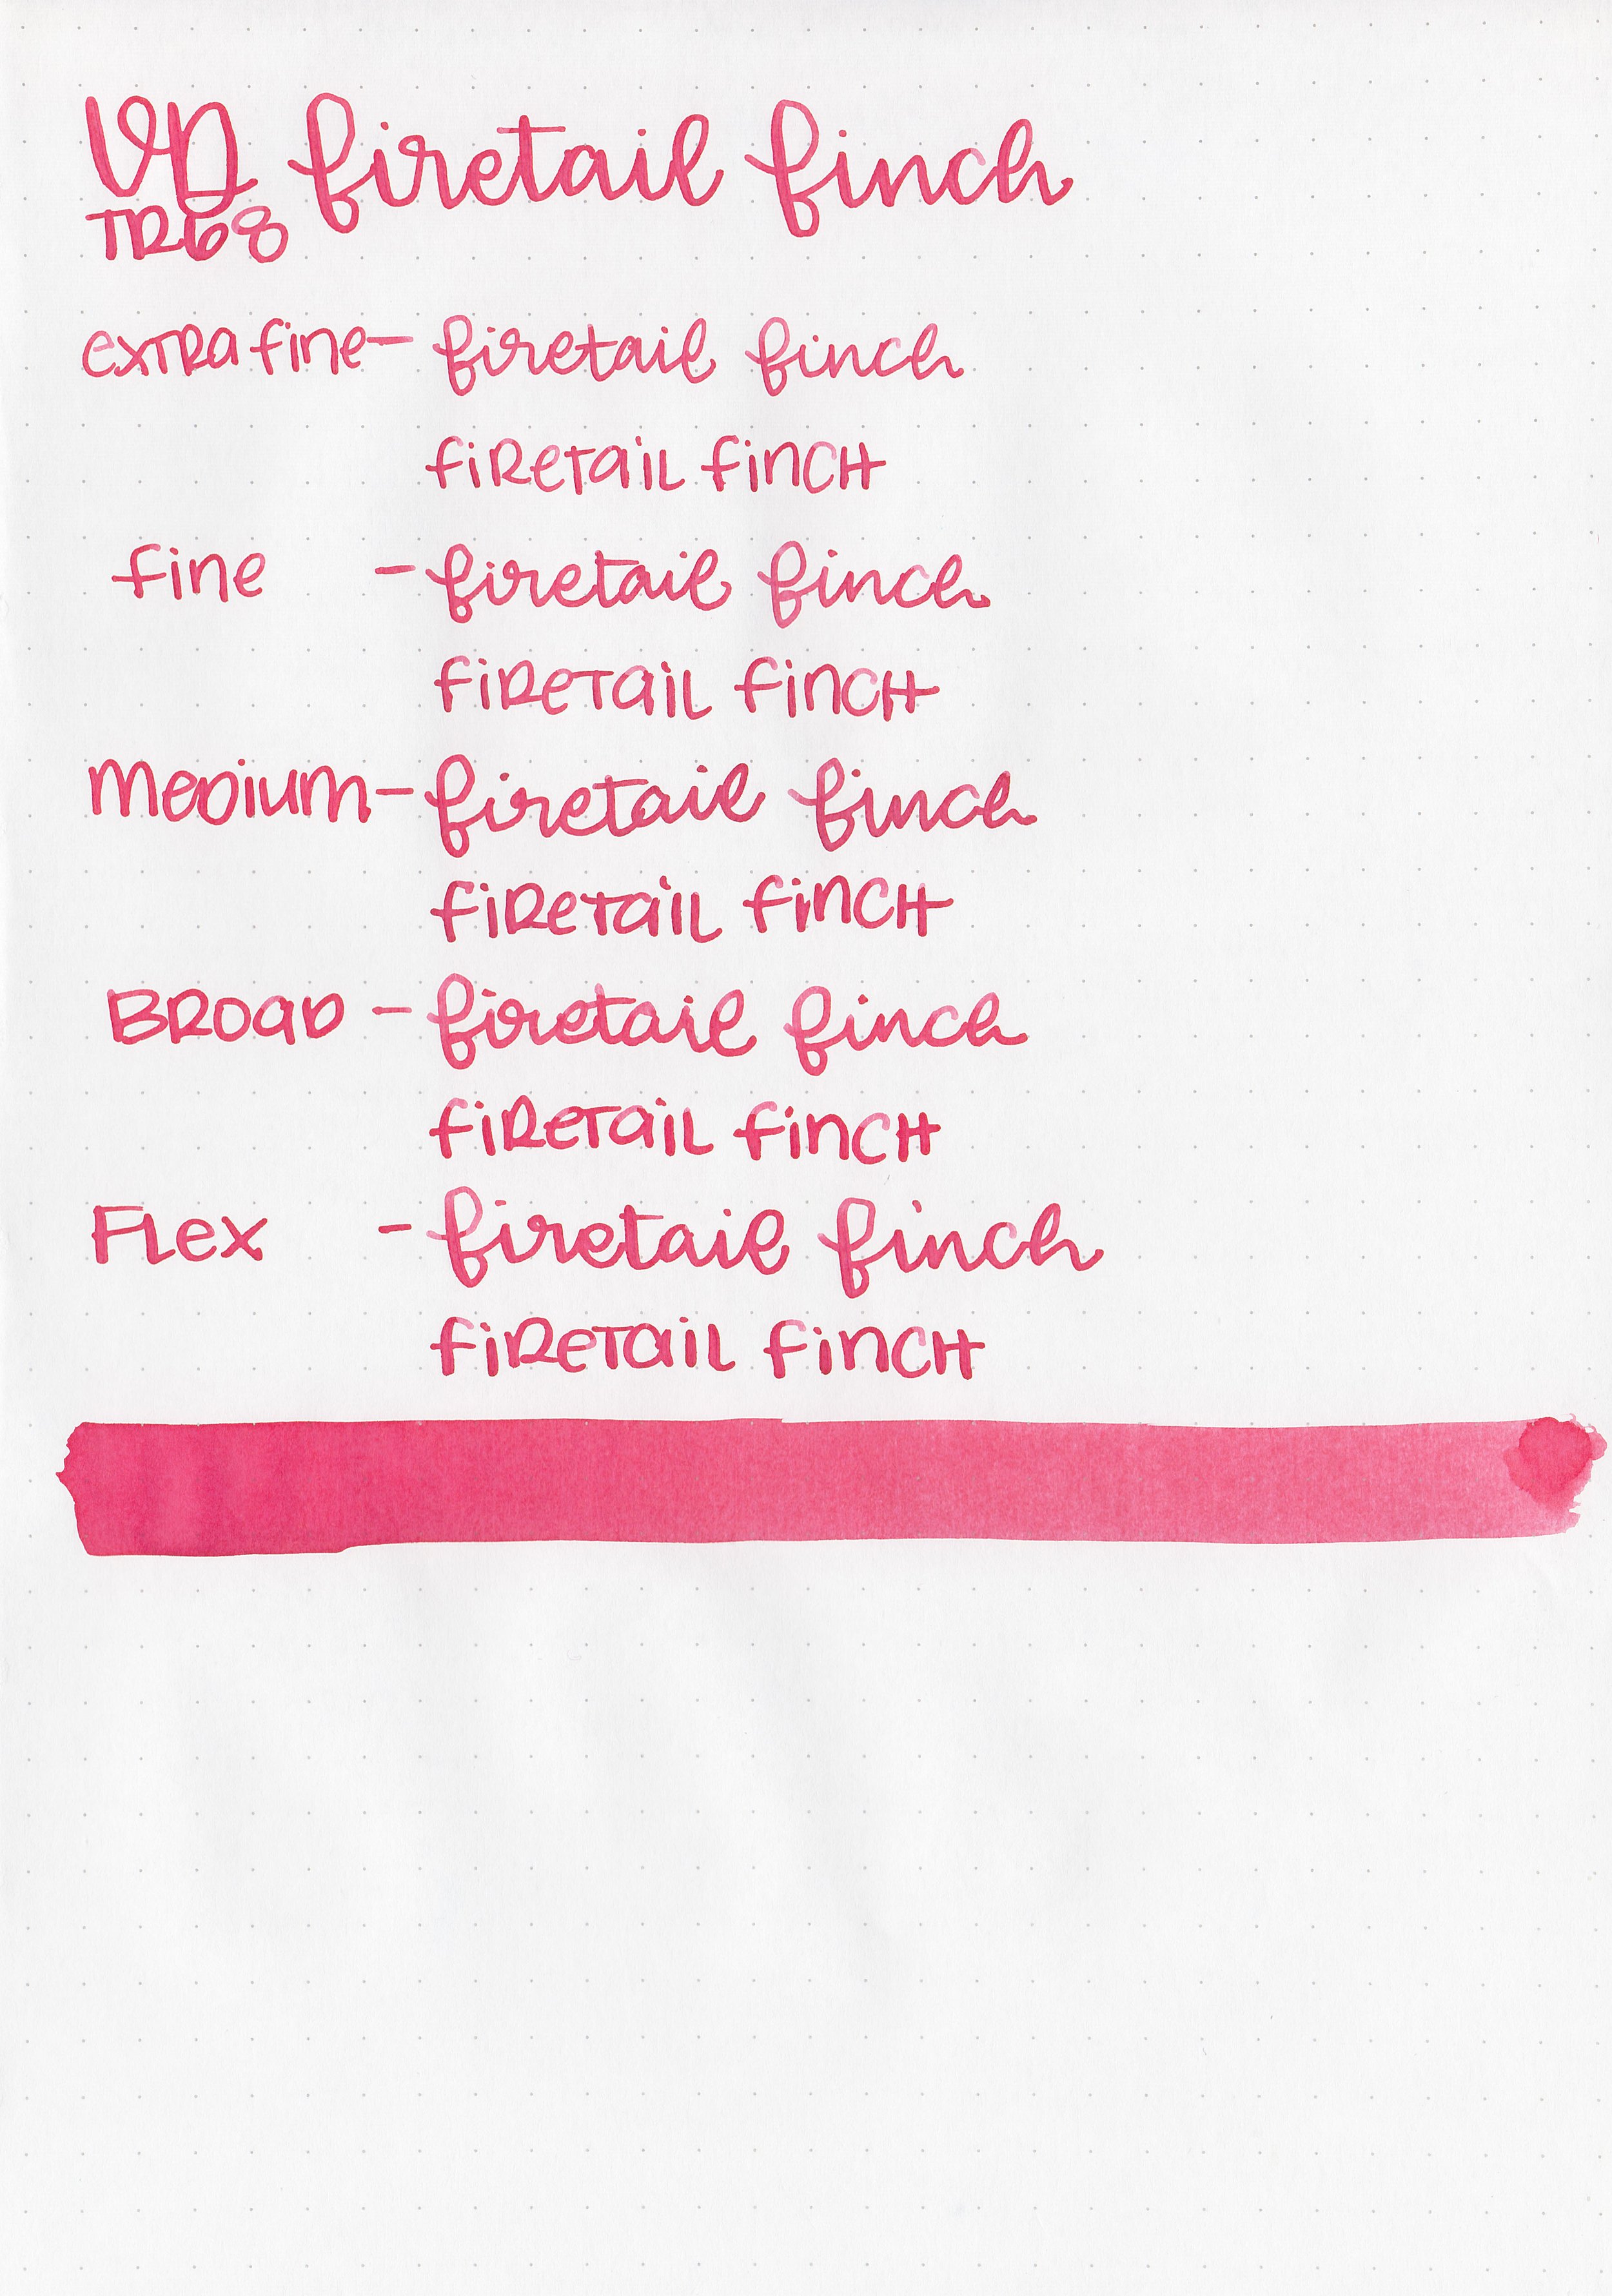 VD firetail finch
TR68
extra fine - firetail finch
firetail finch
fine - firetail finch
firetail finch
medium - firetail finch
firetail finch
Broad - firetail finch
firetail finch
Flex - firetail finch
firetail finch